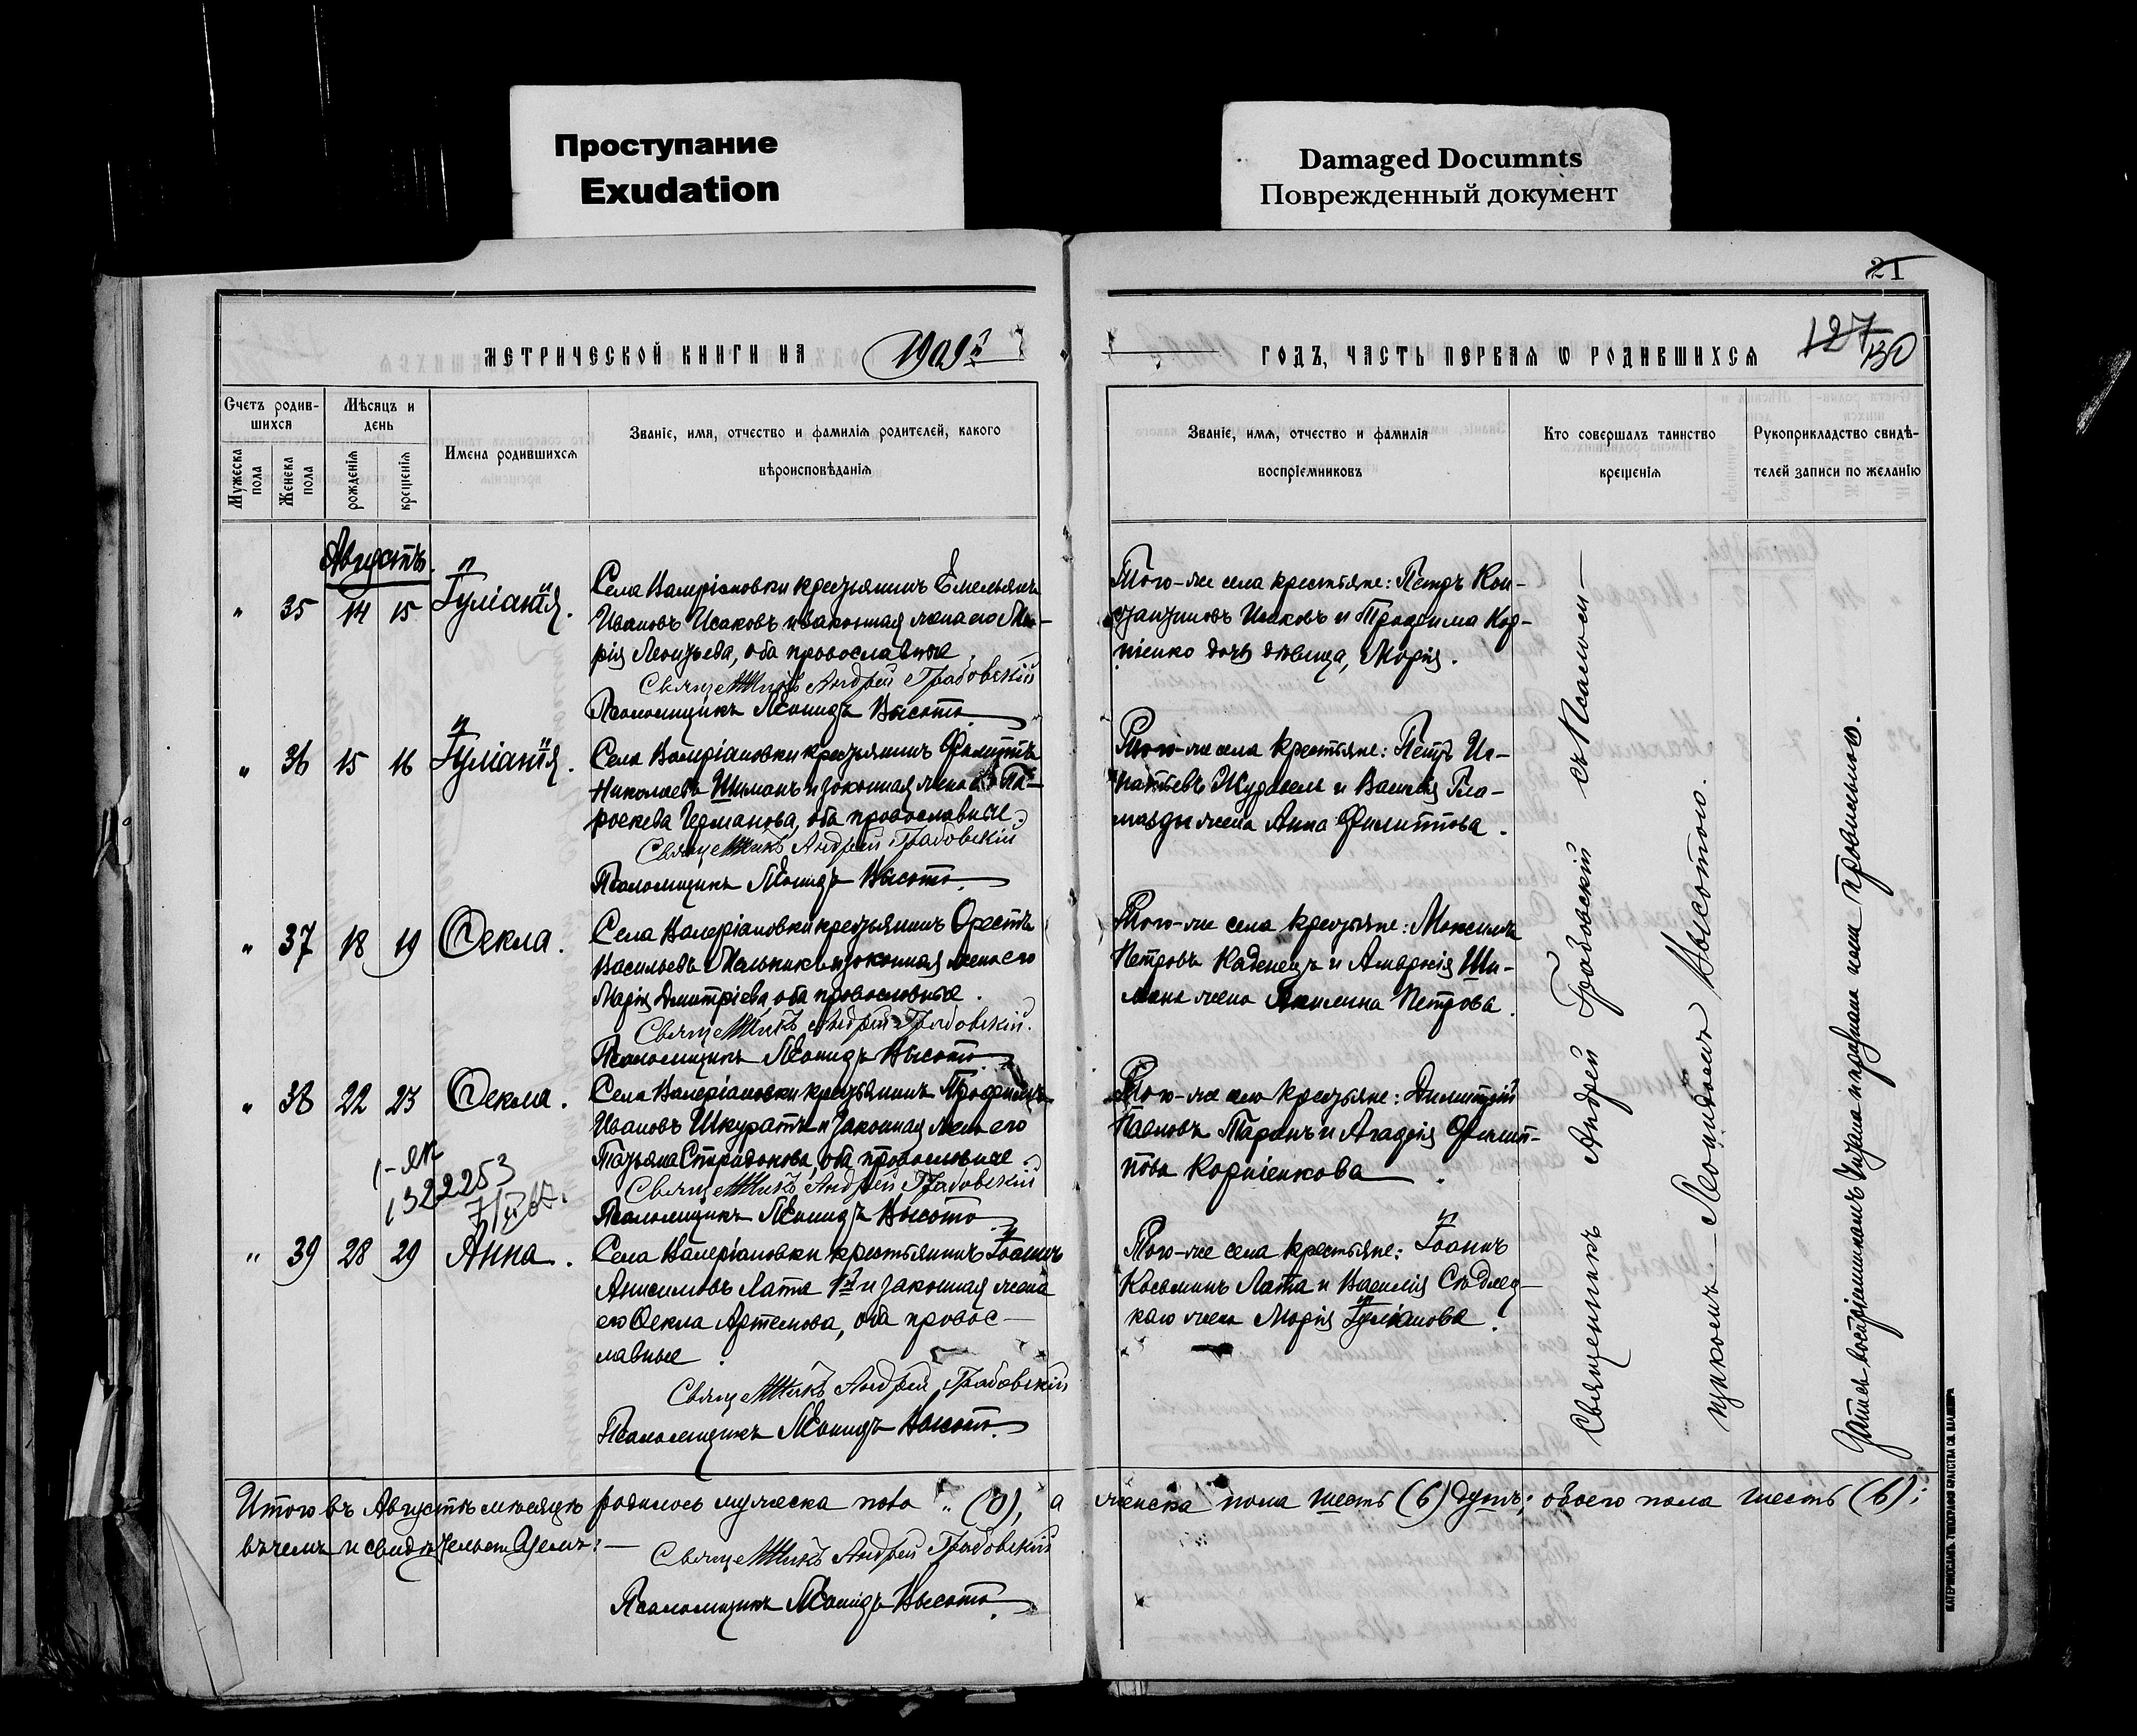 Проступание
Exudation
Damaged Documnts
Поврежденный документ
21
МЕТРИЧЕСКОЙ КНИГИ НА 1909й
ГОДЪ, ЧАСТЬ ПЕРВАЯ Ѡ РОДИВШИХСЯ
127
130
Счетъ родив-
шихся
Мѣсяцъ и
день
Мужеска
пола
Женска
пола
рожденія
крещенія
Имена родившихся
Званіе, имя, отчество и фамилія родителей, какого
вѣроисповѣданія
Званіе, имя, отчество и фамилія
воспріемниковъ
Кто совершалъ таинство
крещенія
Рукоприкладство свидѣ-
телей записи по желанію
Августъ.
" 35 14 15 Іуліанія.
Села Валеріановки крестьянинъ Емельянъ
Ивановъ Исаковъ и законная жена его Ма-
рія Леонтьева, оба православные.
Священникъ Андрей Градовскій
Псаломщикъ Леонидъ Высота.
Того-же села крестьяне: Петръ Кон-
стантиновъ Исаковъ и Трофима Кор-
ніенко дочь девица, Марія.
" 36 15 16 Іуліанія.
Села Валеріановки крестьянинъ Филиппъ
Николаевъ Шиманъ и законная жена его Па-
роскева Германова, оба православные.
Священникъ Андрей Градовскій
Псаломщикъ Леонидъ Высота.
Того-же села крестьяне: Петръ Иг-
натьевъ и Василія Гла-
жена Анна Филиппова.
" 37 18 19 Ѳекла.
Села Валеріановки крестьянинъ Орестъ
Васильевъ Мельникъ и законная жена его
Марія Дмитріева, оба православные.
Священникъ Андрей Градовскій.
Псаломщикъ Леонидъ Высота.
Того-же села крестьяне: Максимъ
Петровъ Каденецъ и Ши-
мана жена Акилина Петрова.
" 38 22 23 Ѳекла.
Села Валеріановки крестьянинъ Трофимъ
Ивановъ Шкуратъ и законная жена его
Татьяна Спиридонова, оба православные.
Священникъ Андрей Градовскій
Псаломщикъ Леонидъ Высота.
Того-же села крестьяне: Димитрій
Павловъ Таранъ и Агафія Филип-
пова Корніенкова.
1322253
" 39 28 29 Анна.
Села Валеріановки крестьянинъ Іоаннъ
Анисимовъ Лата 1й и законная жена
его Ѳекла Артемова, оба правос-
лавные.
Священникъ Андрей Градовскій
Псаломщикъ Леонидъ Высота.
Того-же села крестьяне: Іоаннъ
Косьминъ Лата и Василія Сѣдлец-
каго жена Марія Іуліанова.
Священникъ Андрей Градовскій съ Псалом-
щикомъ Леонидомъ Высотою.
Запись воспріемникамъ читана и признана ими правильною.
Итого въ Августѣ мѣсяцѣ родилось мужеска пола " (0), а женска пола шесть (6) душъ; обоего пола шесть (6);
въ чемъ и свидѣтельствуемъ:
Священникъ Андрей Градовскій
Псаломщикъ Леонидъ Высота.